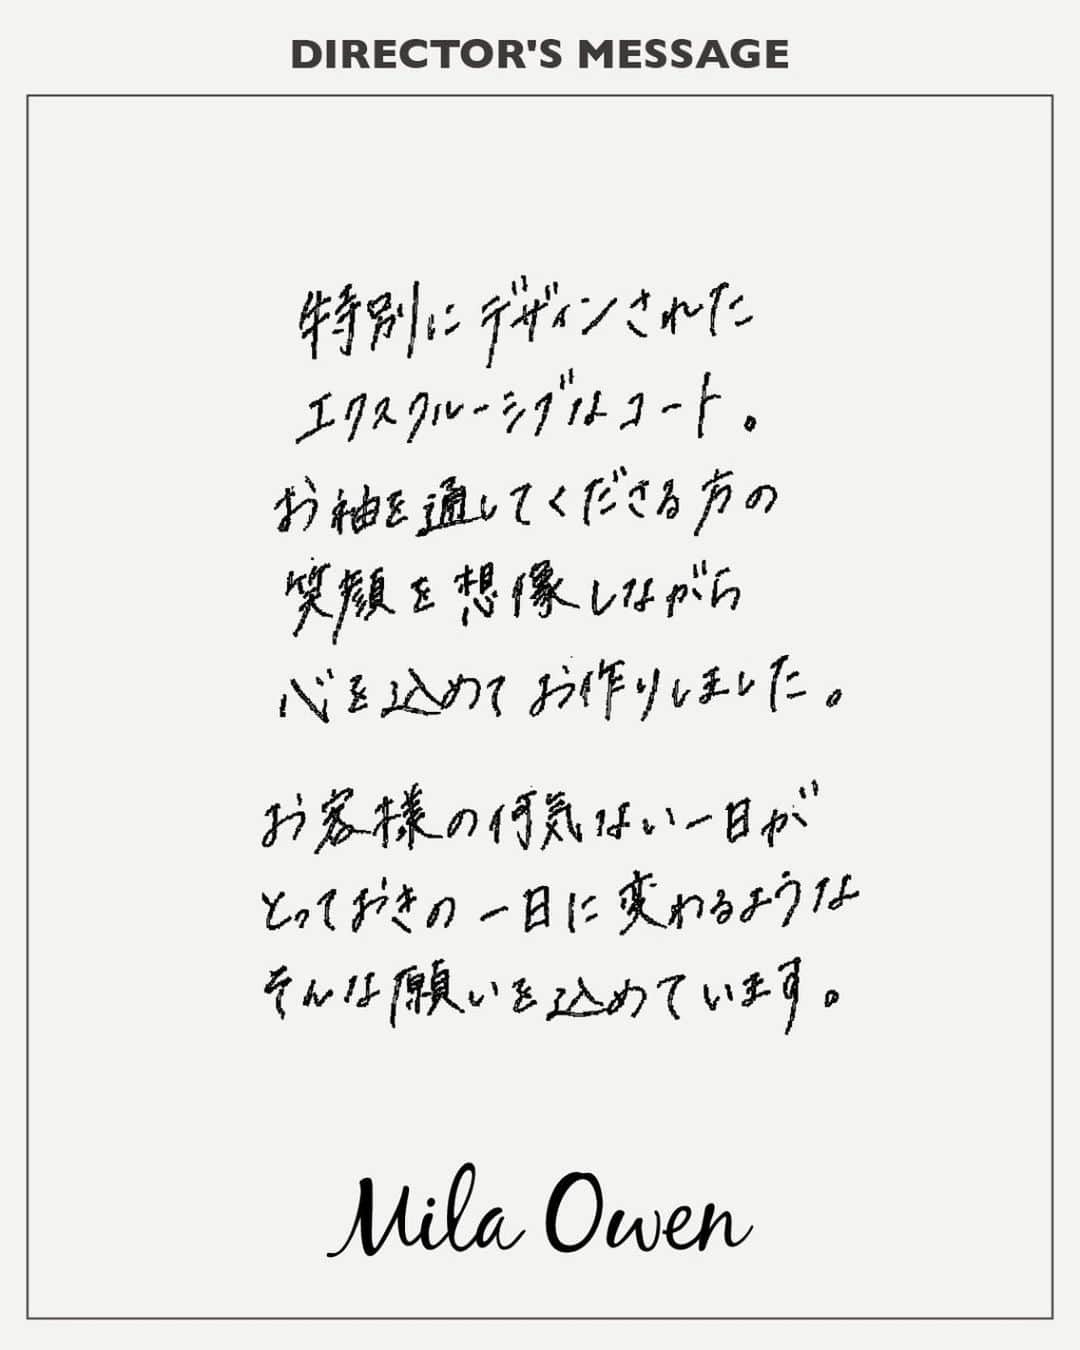 DIRECTOR'S MESSAGE
特別にデザインされた
エクスクルーシブなコート。
お袖を通してくださる方の
笑顔を想像しながら
心を込めてお作りしました。
お客様の何気ない一日が
とっておきの一日に変わるような
そんな願いを込めています。
Mila Owen